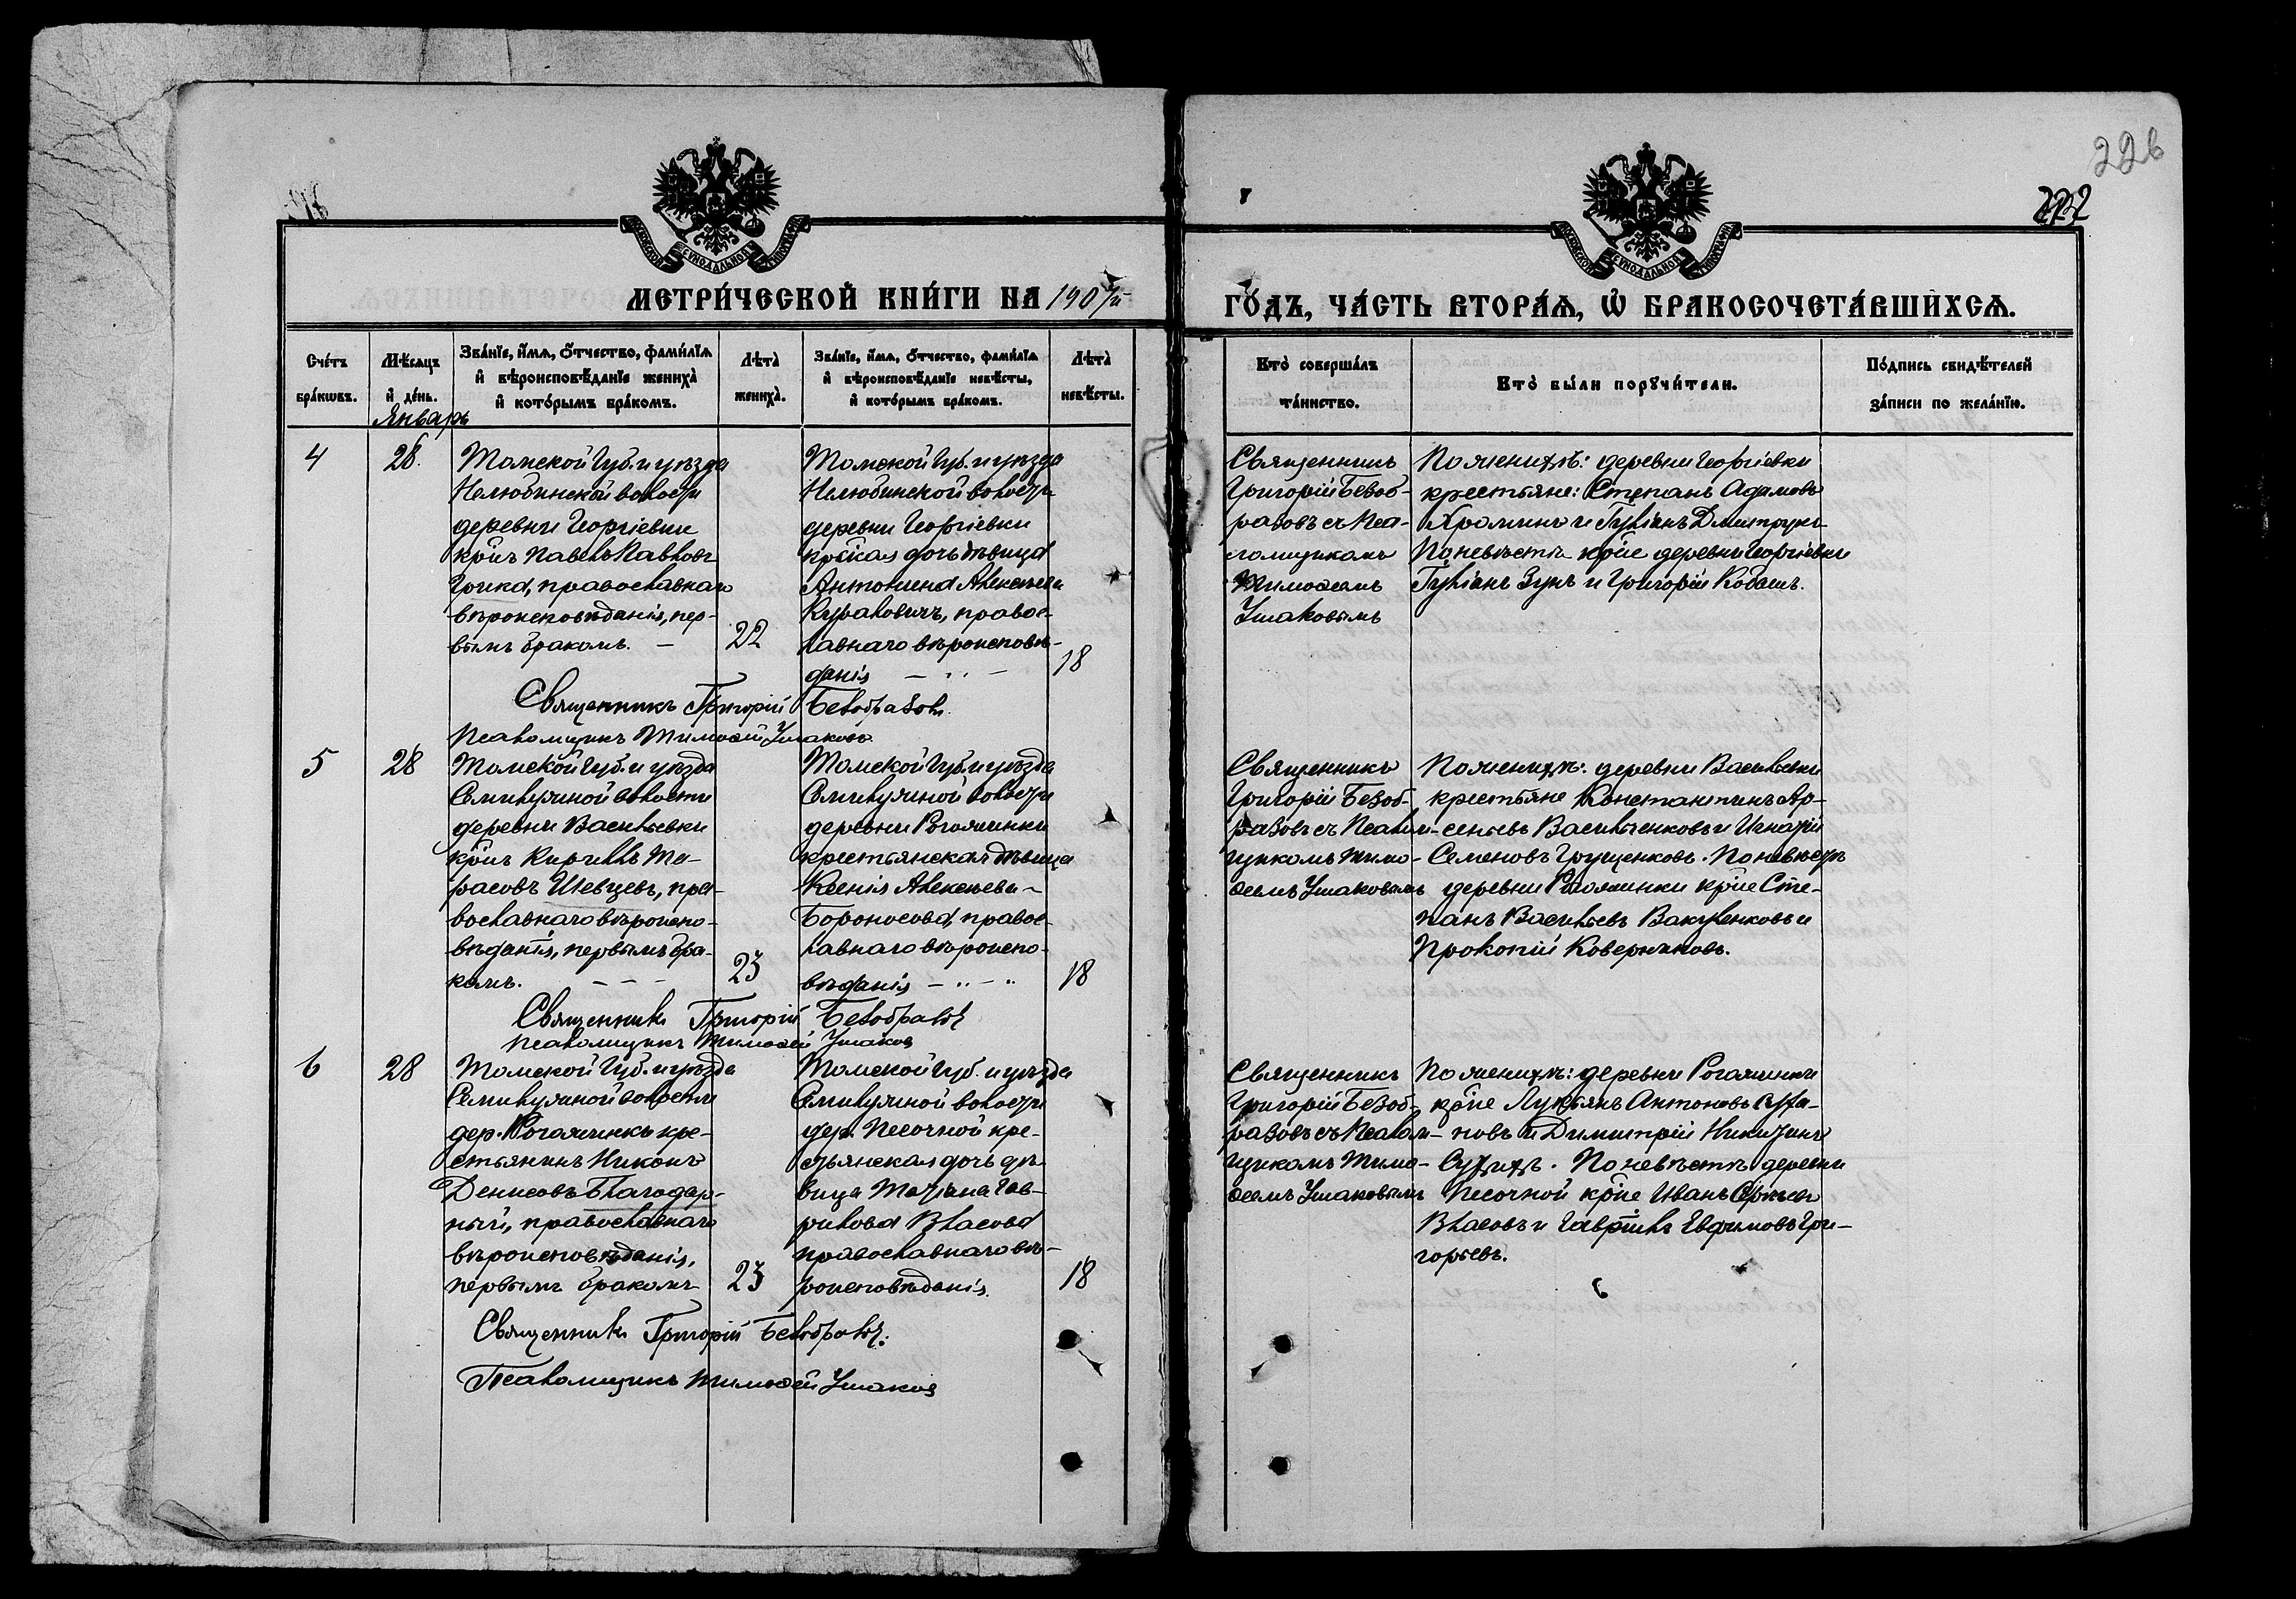 226
222
МЕТРИ́ЧЕСКОЙ КНИ́ГИ НА 1907й
ГО́ДЪ, ЧА́СТЬ ВТОРА́Я, Ѡ҆ БРАКОСОЧЕТА́ВШИХСЯ.
Сче́тъ бра́кѡвъ.
Мѣ́сяцъ и҆ де́нь.
Зва́нїе, и҆́мя, ѻ҆́тчество, фами́лїя
и҆ вѣроисповѣ́данїе жениха̀
и҆ кото́рымъ бра́комъ.
Лѣта̀ жениха̀.
Зва́нїе, и҆́мя, ѻ҆́тчество, фами́лїя
и҆ вѣроисповѣ́данїе невѣ́сты,
и҆ кото́рымъ бра́комъ.
Лѣта̀ невѣ́сты.
Кто̀ соверша́лъ та́инство.
Кто̀ бы́ли порꙋчи́тели.
По́дпись свидѣ́телей
за́писи по жела́нїю.
Январь
4
28.
Томской Губ. и уѣзда
Нелюбинской волости
деревни Георгіевки
кр͠нъ Павелъ Павловъ
Грика, православнаго
вѣроисповѣданія, пер-
вымъ бракомъ. —
22
Томской Губ. и уѣзда
Нелюбинской волости
деревни Георгіевки
кр͠ская дочь дѣвица
Антонина Алексѣева
Куралович, правос-
лавнаго вѣроисповѣ-
данія
18
Священникъ
Григорій Безоб-
разовъ съ Пса-
ломщикомъ
Тимоѳеемъ
Ушаковымъ
По женихѣ: деревни Георгіевки
крестьяне: Степанъ Адамовъ
Хроминъ и Гулiанъ Дмитрукъ
По невѣстѣ кр͠не деревни Георгіевки
Гулiанъ Зунъ и Григорій Кобашъ.
Священникъ Григорій Безобразовъ.
Псаломщикъ Тимоѳей Ушаковъ
5
28
Томской Губ. и уѣзда
Семилужной волости
деревни Васильевки
кр͠нъ Кириллъ Та-
расовъ Шевцевъ, пра-
вославнаго вѣроиспо-
вѣданія, первымъ бра-
комъ. — — —
23
Томской Губ. и уѣзда
Семилужной волости
деревни Рогожинки
крестьянская дѣвица
Ксенія Алексѣева —
Бороносова, правос-
лавнаго вѣроиспо-
вѣданія
18
Священникъ
Григорій Безоб-
разовъ съ Псалом-
щикомъ Тимо-
ѳеемъ Ушаковымъ
По женихѣ: деревни Васильевки
крестьяне Константинъ Ар-
сеньевъ Василенковъ и Игнатій
Семеновъ Грущенковъ. По невѣстѣ
деревни Рогожинки кр͠не Сте-
панъ Васильевъ Вакуленковъ и
Прокопій Коверниковъ.
Священникъ Григорій Безобразовъ
Псаломщикъ Тимоѳей Ушаковъ
6
28
Томской Губ. и уѣзда
Семилужной волости
дер. Рогожинки кре-
стьянинъ Никонъ
Денисовъ Благодар-
ный, православнаго
вѣроисповѣданія,
первымъ бракомъ
23
Томской Губ. и уѣзда
Семилужной волости
дер. Песочной кре-
стьянская дочь дѣ-
вица Татіана Гав-
рилова Власова
православнаго вѣ-
роисповѣданія.
18
Священникъ
Григорій Безоб-
разовъ съ Псалом-
щикомъ Тимо-
ѳеемъ Ушаковымъ
По женихѣ: деревни Рогожинки
кр͠не Лукьянъ Антоновъ
и Димитрій Никитинъ
По невѣстѣ деревни
Песочной кр͠не Иванъ Сергѣевъ
Власовъ и Гавріилъ Евфимовъ Гри-
горьевъ.
Священникъ Григорій Безобразовъ.
Псаломщикъ Тимоѳей Ушаковъ